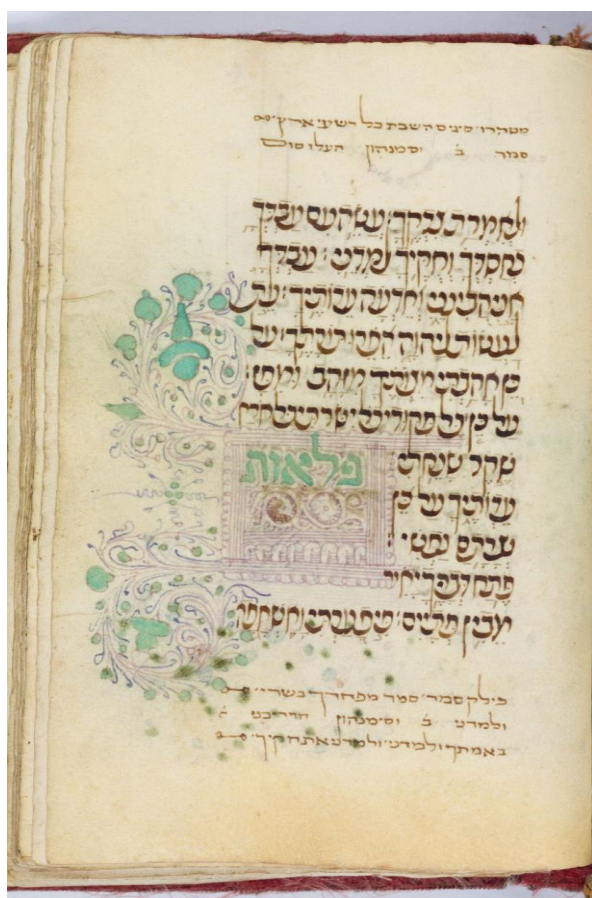 סיגים השבת כל רשעי ארץ
סמר ב וסימנהון העלו סוס
ולאמרת צדקך׃ עשה עם עבדך
כחסדך וחקיך למדני׃ עבדך
אני הבינני ואדעה עדותיך׃ עת
לעשות ליהוה הפרו תורתך׃ על
כן אהבתי מצותיך מזהב ומפז׃
על כן כל פקודי כל ישרתי כל ארח
שקר שנאתי׃ פלאות
עדותיך על כן
נצרתם נפשי׃
פתח דבריך יאיר
מבין פתיים׃ פי פערתי ואשאפה
כילק סמר׃ סמר מפחדך בשרי׃
ולמדני וסימנהון הדריכני
באמתך ולמדני׃ ולמדני את חקיך׃